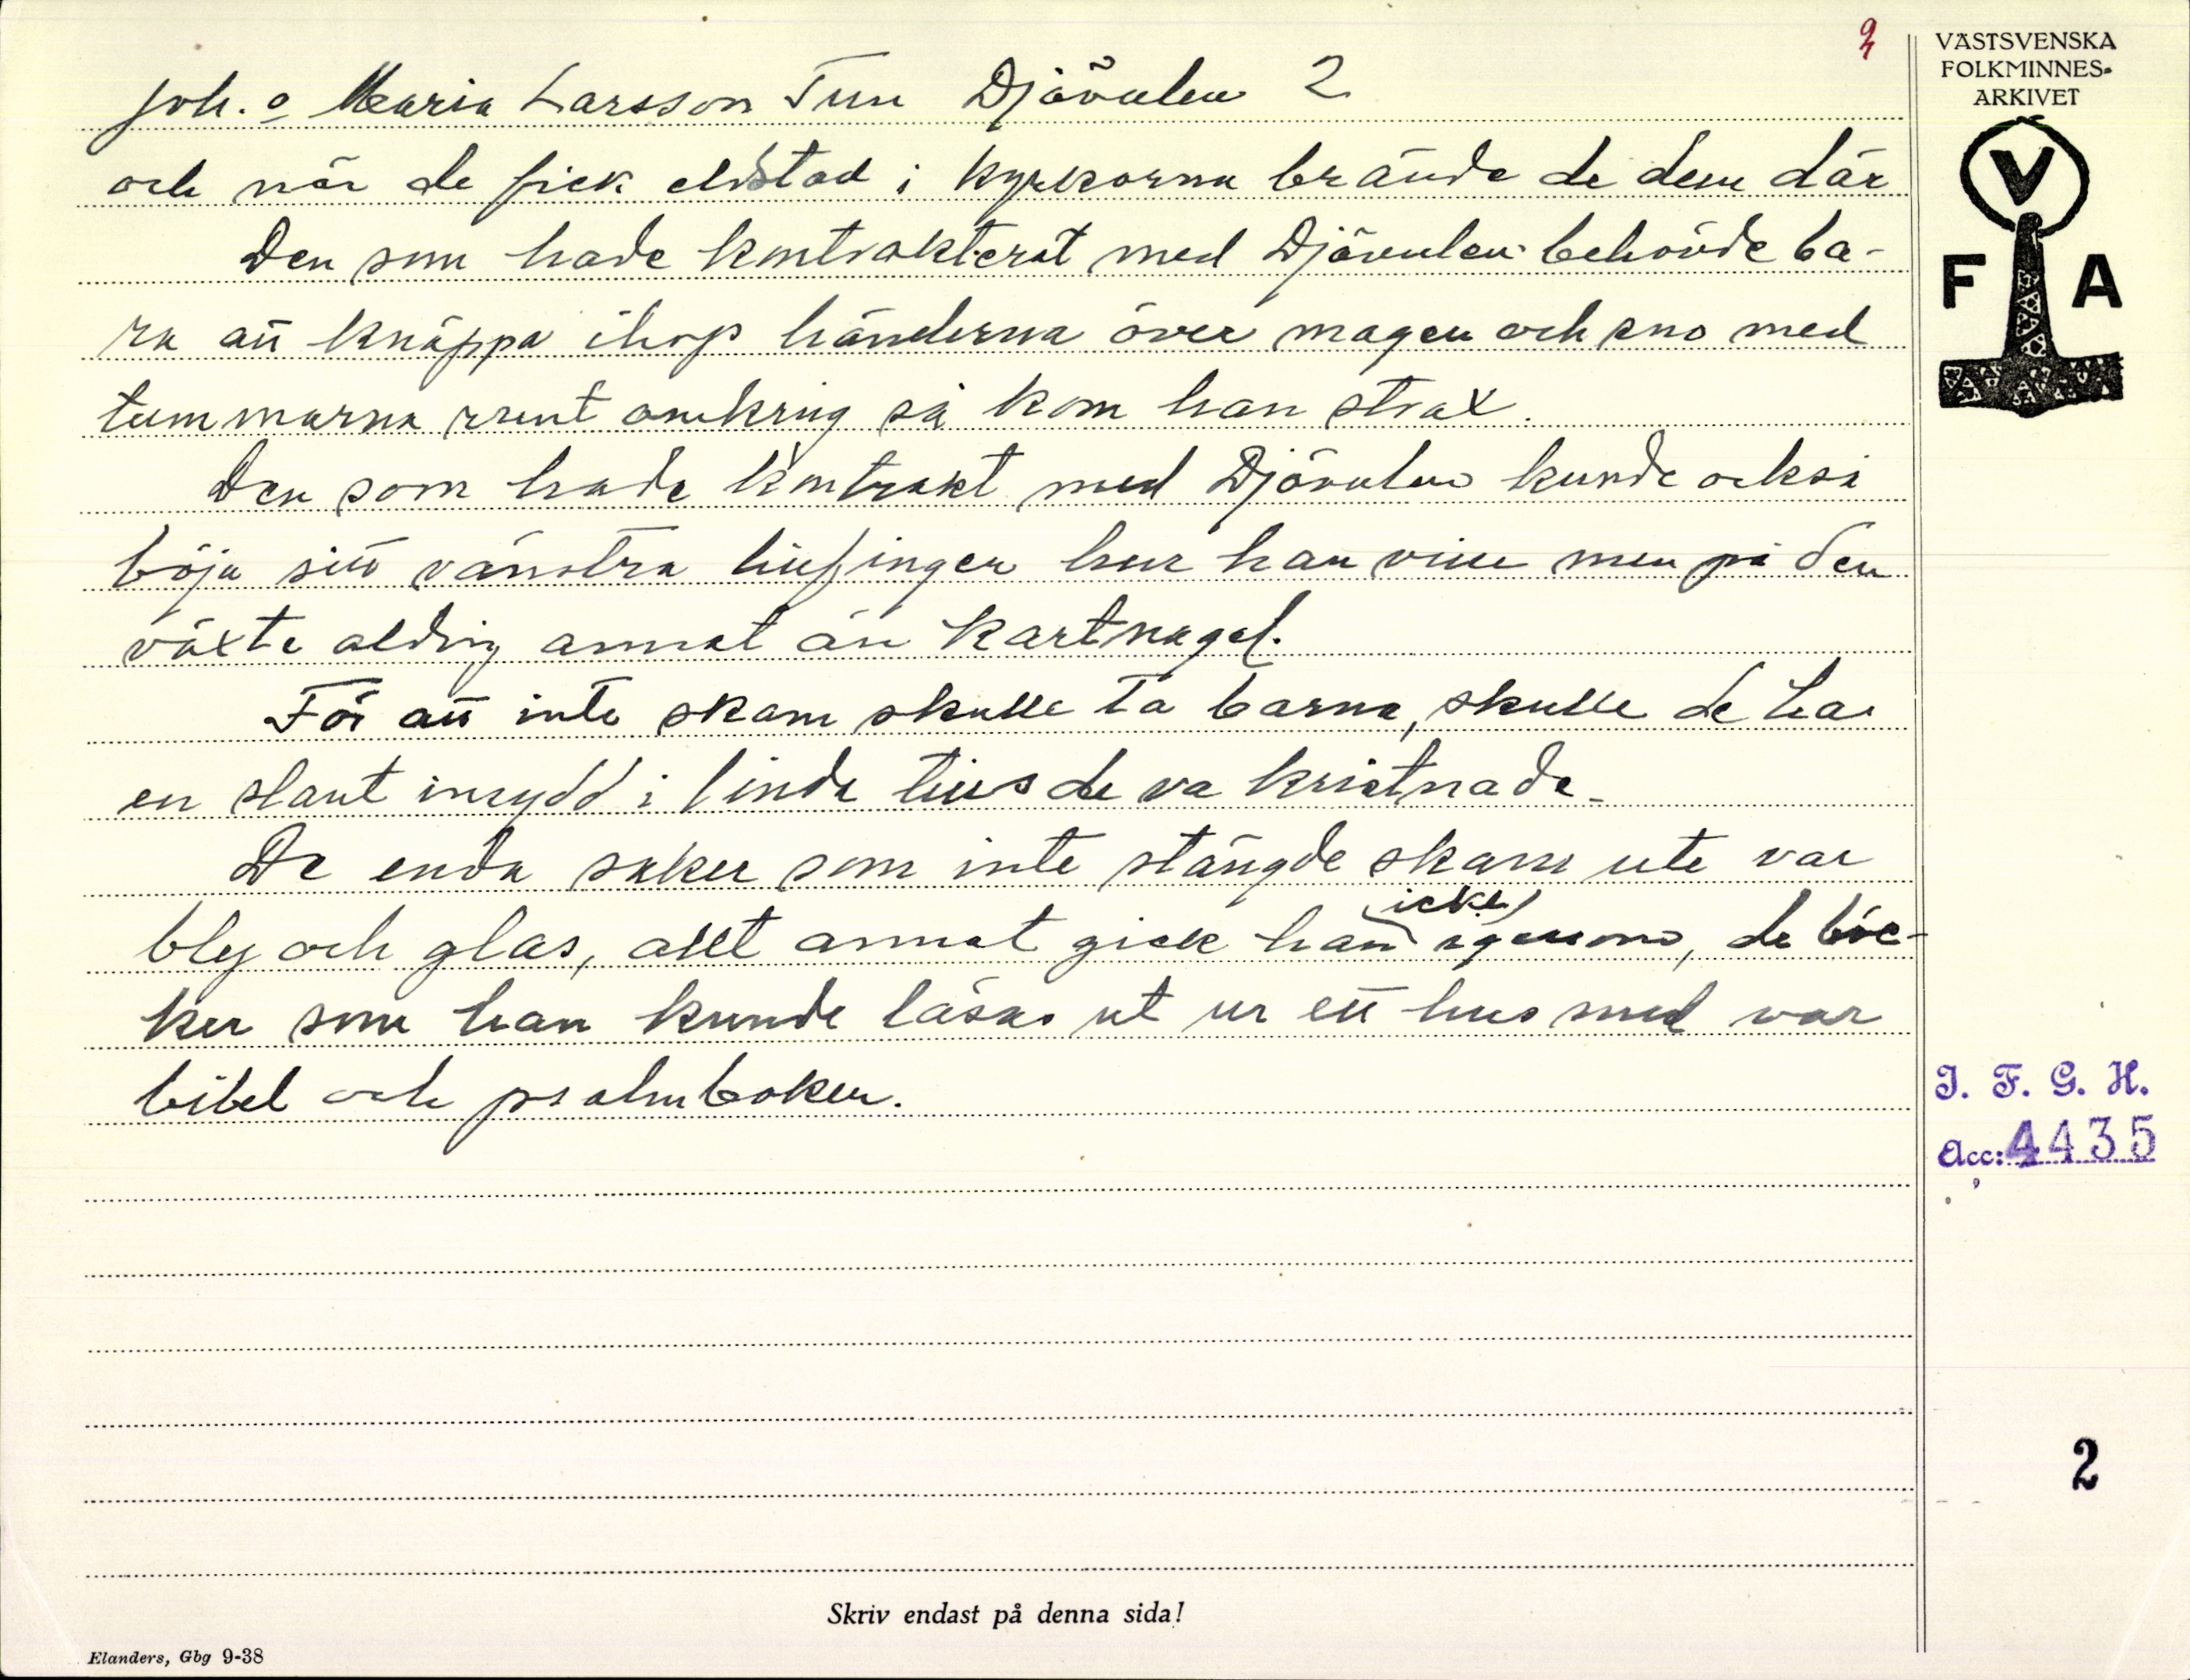 Joh. o Maria Larsson Tun Djävulen 2
och när de fick eldstad i kyrkorna brände de dem där
Den som hade kontrakterat med Djävulen behövde ba-
ra att knäppa ihop händerna över magen och sno med
tummarna runt omkring så kom han strax.
Den som hade kontrakt med Djävulen kunde också
böja sitt vänstra lillfinger hur han ville men på den
växte aldrig annat än kartnagel.
För att inte skam skulle ta barna, skulle de ha
en slant insydd i linda tills de va kristnade.
De enda saker som inte stängde skam ute var
bly och glas, allt annat gick han (icke) igenom, de böc-
ker som han kunde läsas ut ur ett hus med var
bibel och psalmboken.
VÄSTSVENSKA
FOLKMINNES-
ARKIVET
V
F A
I. F. G. H.
Acc: 4435
2
Skriv endast på denna sida!
Elanders, Gbg 9-38